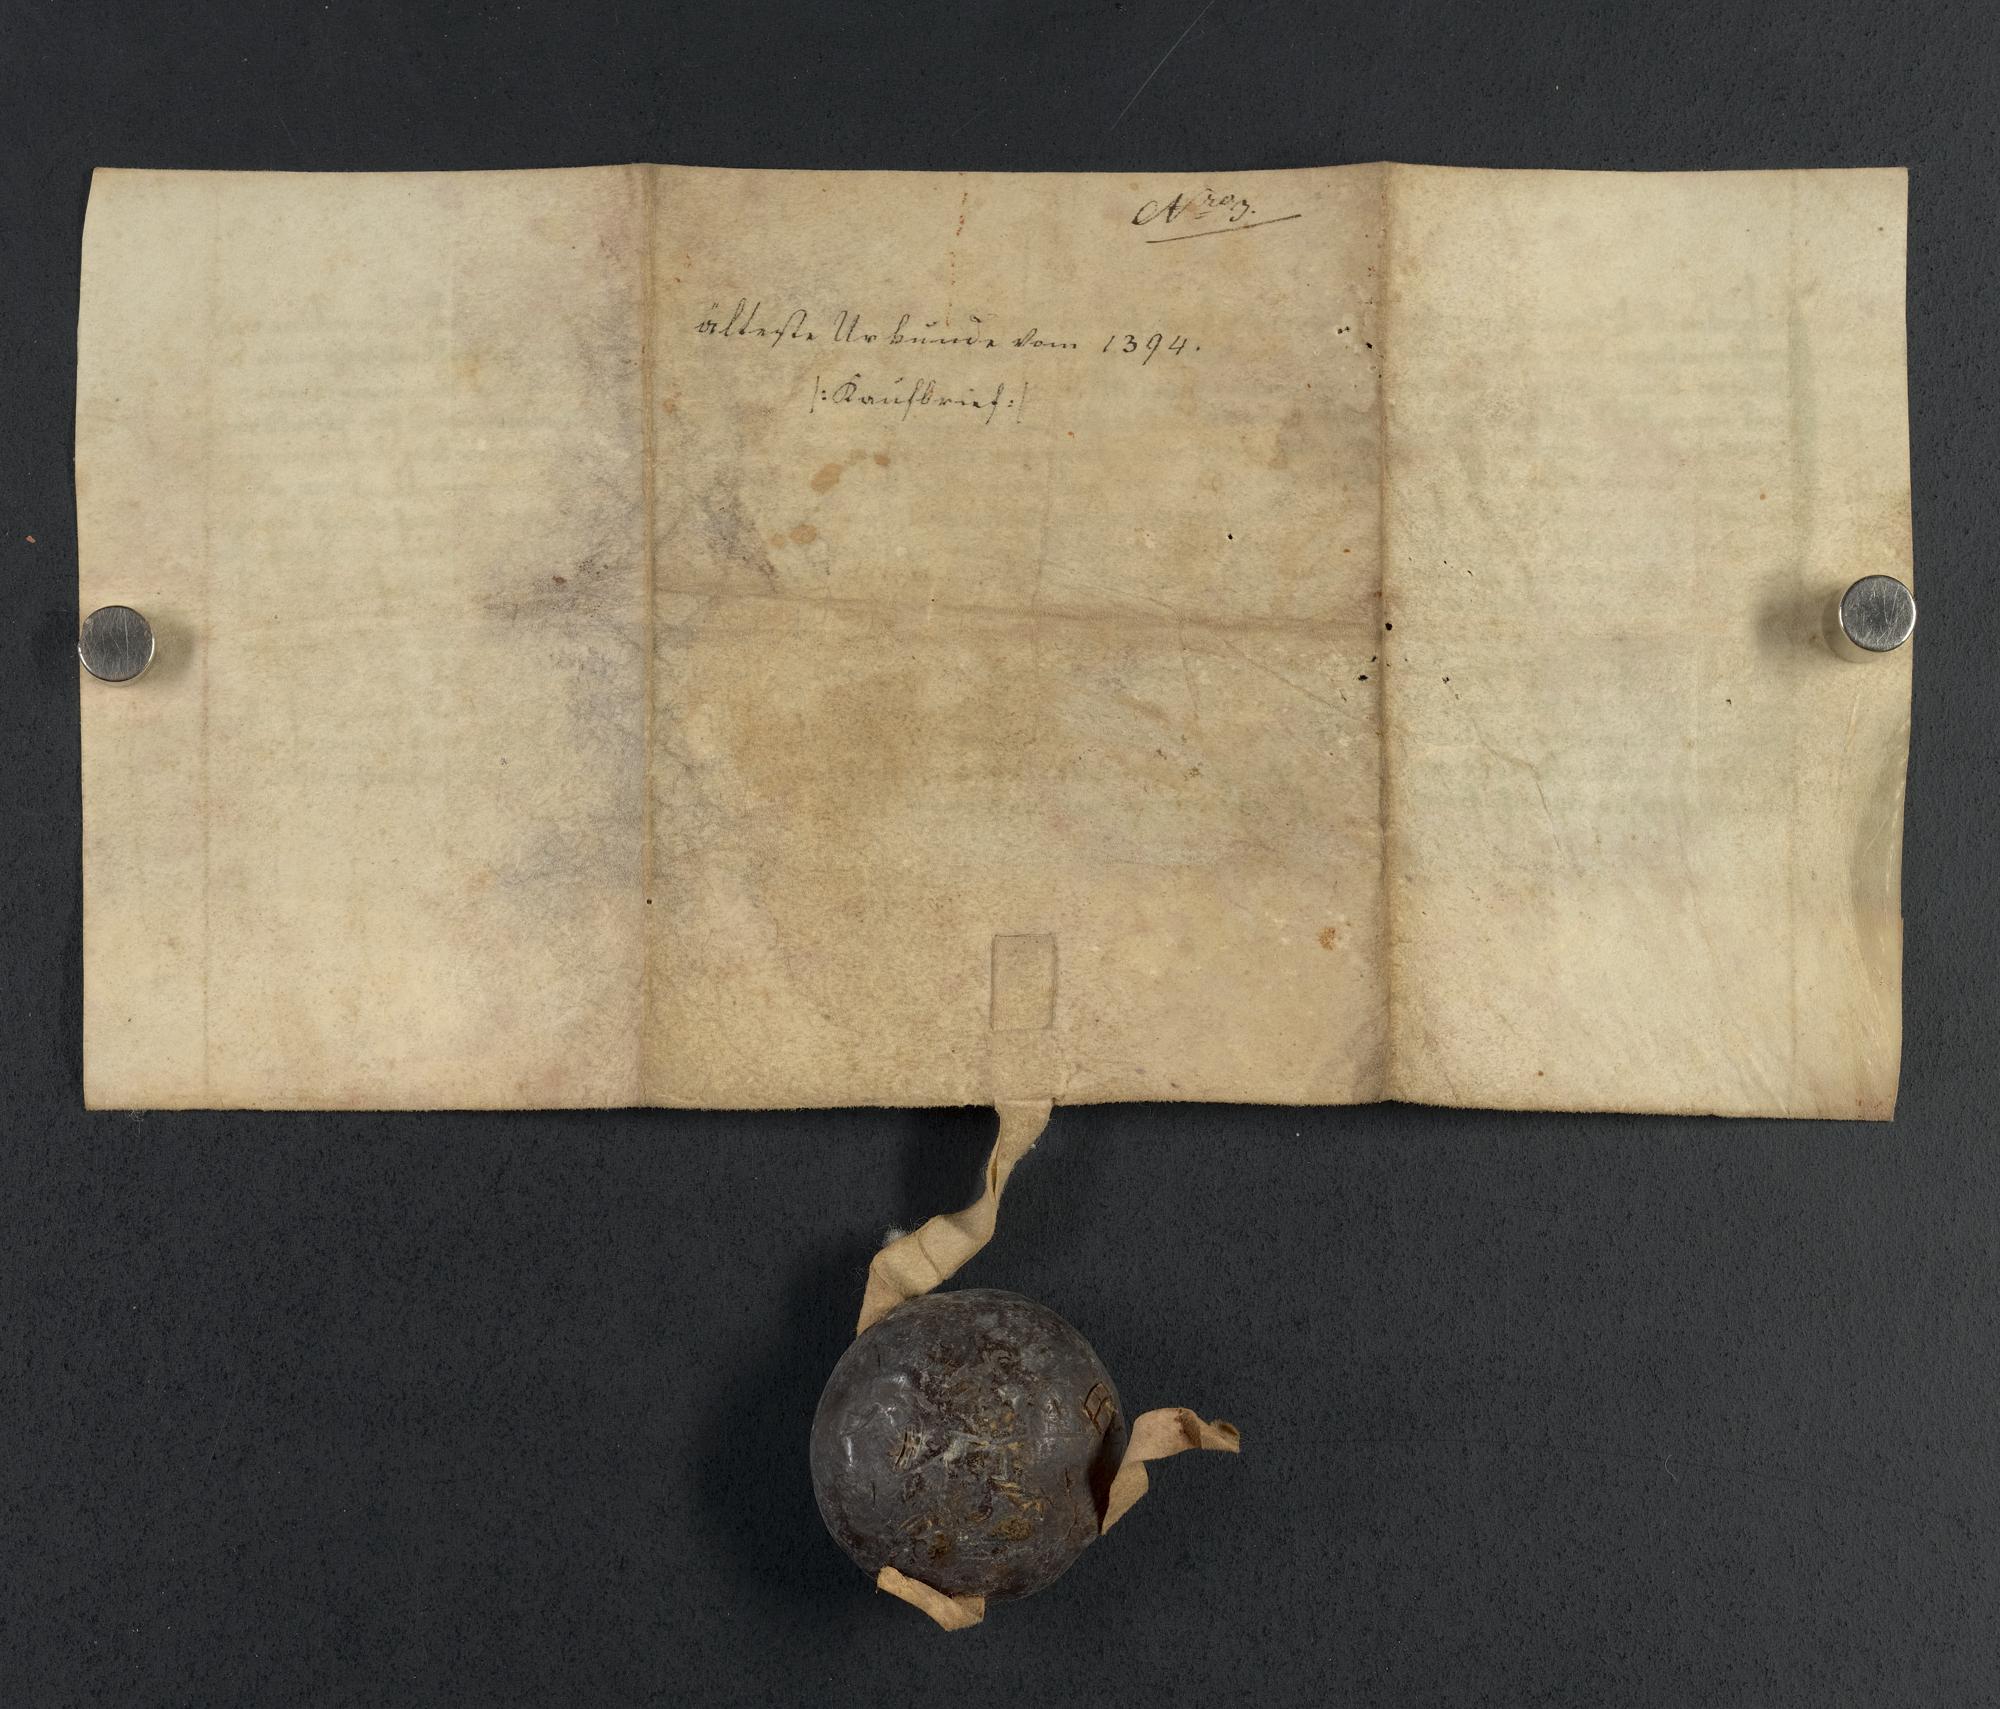 Nro 3.
älteste Urkunde vom 1394.
|: Kaufbrief :|